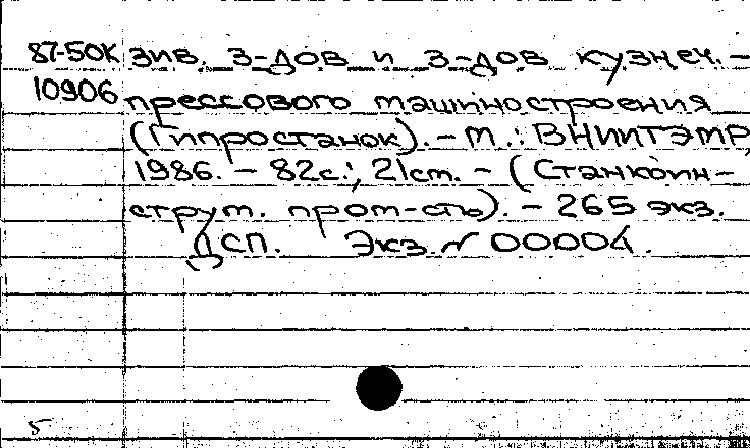 87-50К зив. з-дов и з-дов кузнеч.-
10906 прессового машиностроения
(Гипростанок). – М.: ВНИИТЭМР,
1986. – 82с.; 21см. – (Станкоин-
струм. пром-сть). – 265 экз.
ДСП. Экз. № 00004.
5